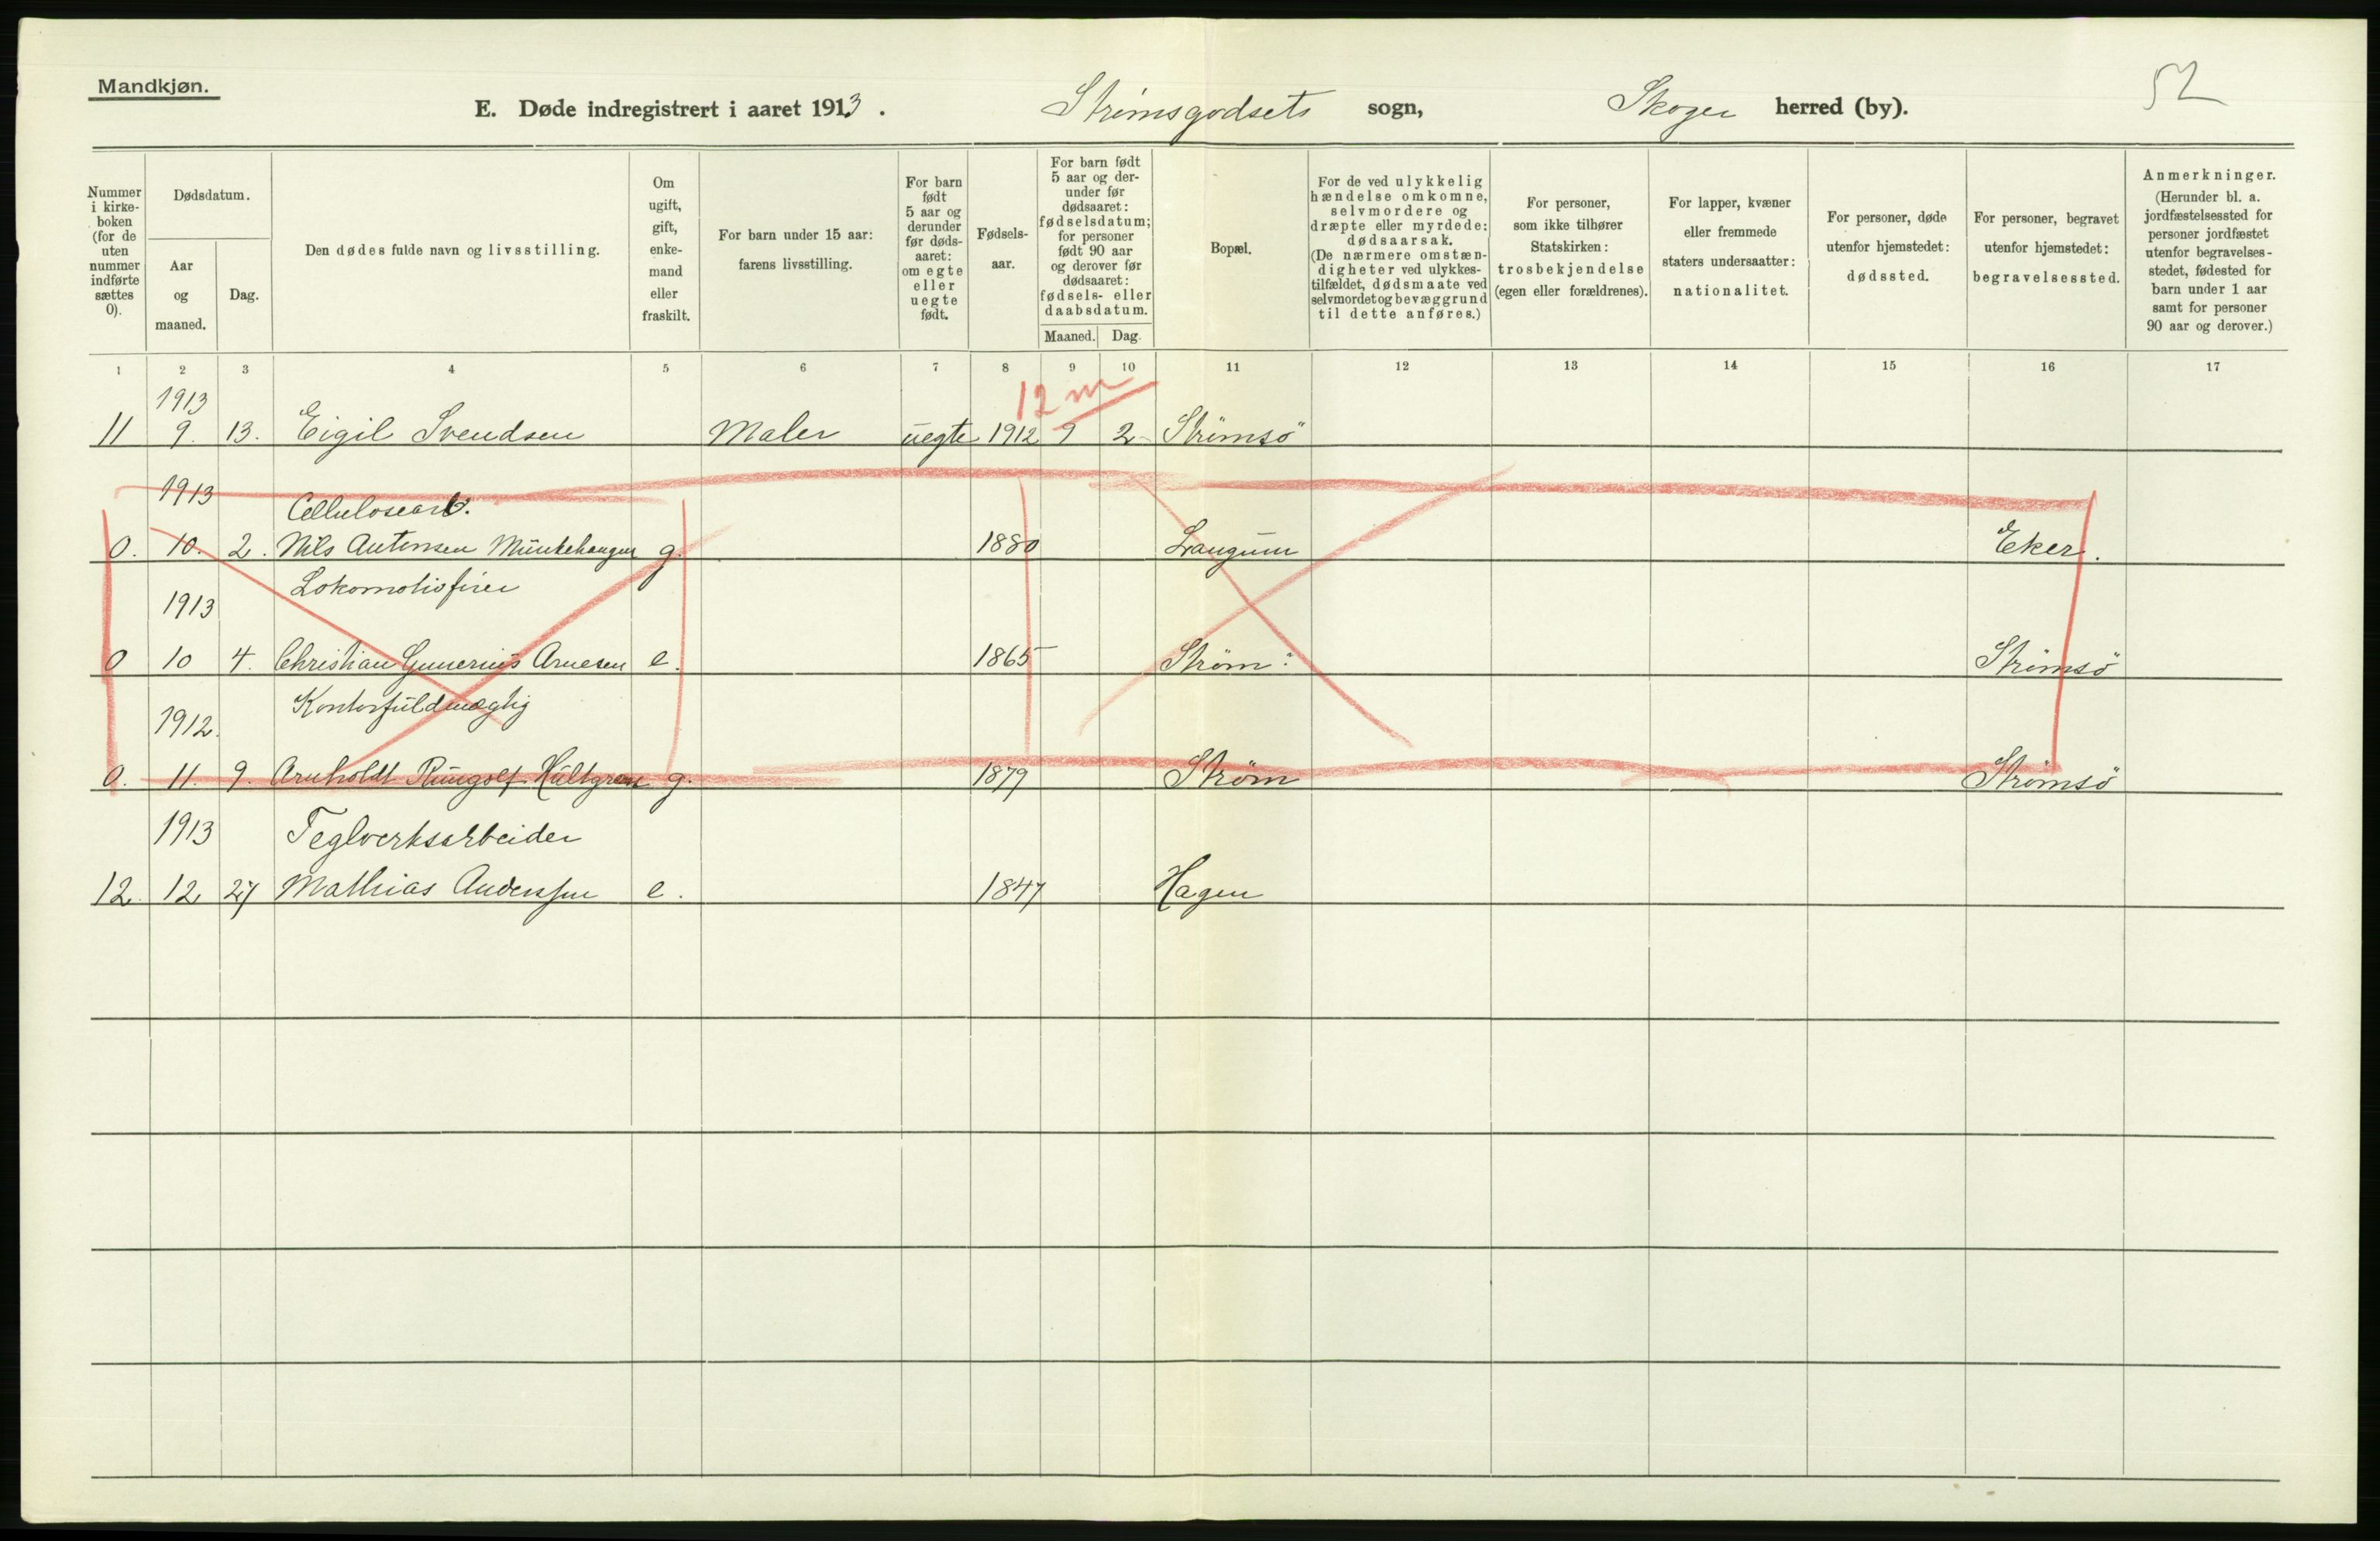 Mandkjøn.
E. Døde indregistrert i aaret 1913. Strömsgodsets sogn, Skoger herred (by).
52
Nummer i kirke- boken (for de uten nummer indførte sættes 0).
Dødsdatum.
Aar og maaned.
Dag.
Den dødes fulde navn og livsstilling.
Om ugift, gift, enke- mand eller fraskilt.
For barn under 15 aar: farens livsstilling.
For barn født 5 aar og derunder før døds- aaret: om egte eller uegte født.
Fødsels- aar.
For barn født 5 aar og der- under før dødsaaret: fødselsdatum; for personer født 90 aar og derover før dødsaaret: fødsels- eller daabsdatum.
Maaned. Dag.
Bopæl.
For de ved ulykkelig hændelse omkomne, selvmordere og dræpte eller myrdede: dødsaarsak. (De nærmere omstæn- digheter ved ulykkes- tilfældet, dødsmaate ved selvmordet og bevæggrund til dette anføres.)
For personer, som ikke tilhører Statskirken: trosbekjendelse (egen eller forældrenes).
For lapper, kvæner eller fremmede staters undersaatter: nationalitet.
For personer, døde utenfor hjemstedet: dødssted.
For personer, begravet utenfor hjemstedet: begravelsessted.
Anmerkninger. (Herunder bl. a. jordfæstelsessted for personer jordfæstet utenfor begravelses- stedet, fødested for barn under 1 aar samt for personer 90 aar og derover.)
1 2 3 4 5 6 7 8 9 10 11 12 13 14 15 16 17
1913 12 m
11 9. 13. Eigil Svendsen Maler uegte 1912 9 2 Strömsö
1913 Cellulosearb.
0. 10. 2. Nils Antonsen Munkehaugen g. 1880 Langum Eker.
1913 Lokomotivfirer
0 10 4. Christian Gunerius Arnesen e. 1865 Ström. Strömsö
1912. Kontorfuldmægtig
0. 11. 9. Arnholdt Hultgren g. 1879 Ström Strömsö
1913 Teglverksarbeider
12. 12 27 Mathias Anderssen e. 1847 Hagen